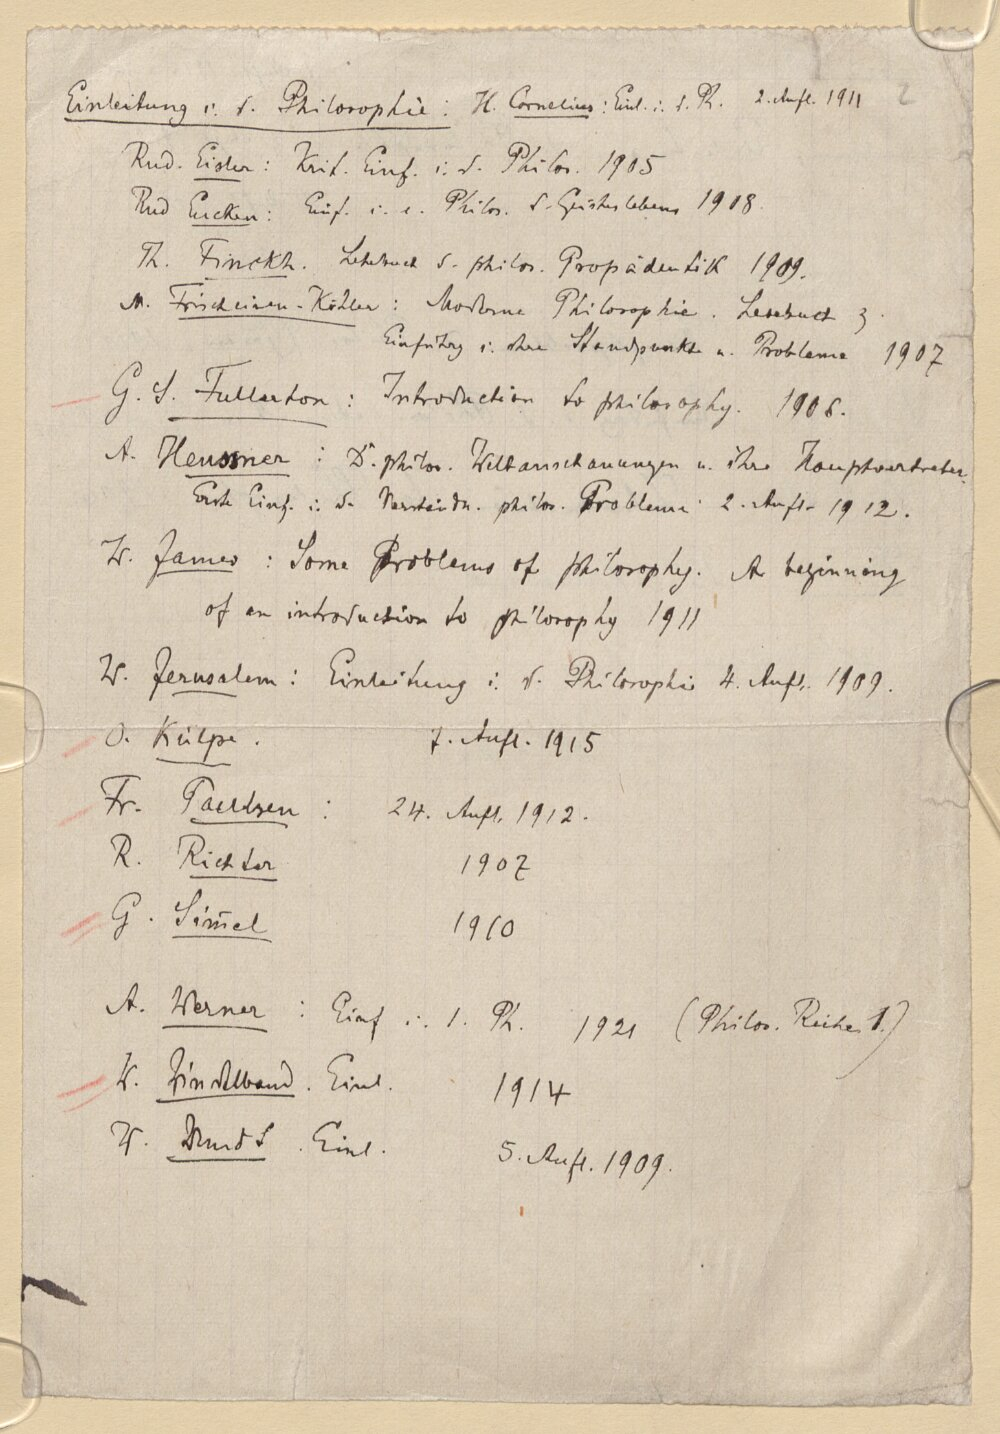 Einleitung i. d. Philosophie: H. Cornelius: Einl. i. d. Ph. 2. Aufl. 1911 2
Rud. Eisler: Krit. Einf. i. d. Philos. 1905
Rud Eucken: Einf. i. e. Philos. d. Geisteslebens 1908.
Th. Finckh. Lehrbuch d. philos. Propädeutik 1909.
M. Frischeisen-Köhler: Moderne Philosophie. Lesebuch z.
Einführg i. ihre Standpunkte u. Probleme 1907
G. S. Fullerton: Introduction to philosophy. 1906.
A. Heussner: D. philos. Weltanschauungen u. ihre Hauptvertreter.
Erste Einf. i. d. Verständn. philos. Probleme 2. Aufl. 1912.
W. James: Some Problems of philosophy. A beginning
of an introduction to philosophy 1911
W. Jerusalem: Einleitung i. d. Philosophie 4. Aufl. 1909.
O. Külpe. 7. Aufl. 1915
Fr. Paulsen: 24. Aufl. 1912.
R. Richter 1907
G. Sim̅el 1910
A. Werner: Einf i. d. Ph. 1921 (Philos. Reihe 1.)
W. Windelband. Einl. 1914
W. Wundt. Einl. 5. Aufl. 1909.